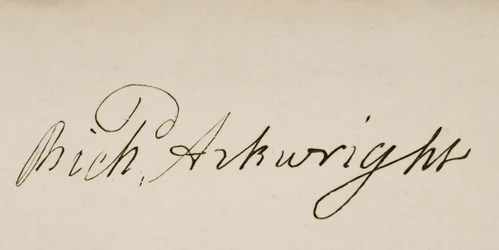 Richd. Arkwright